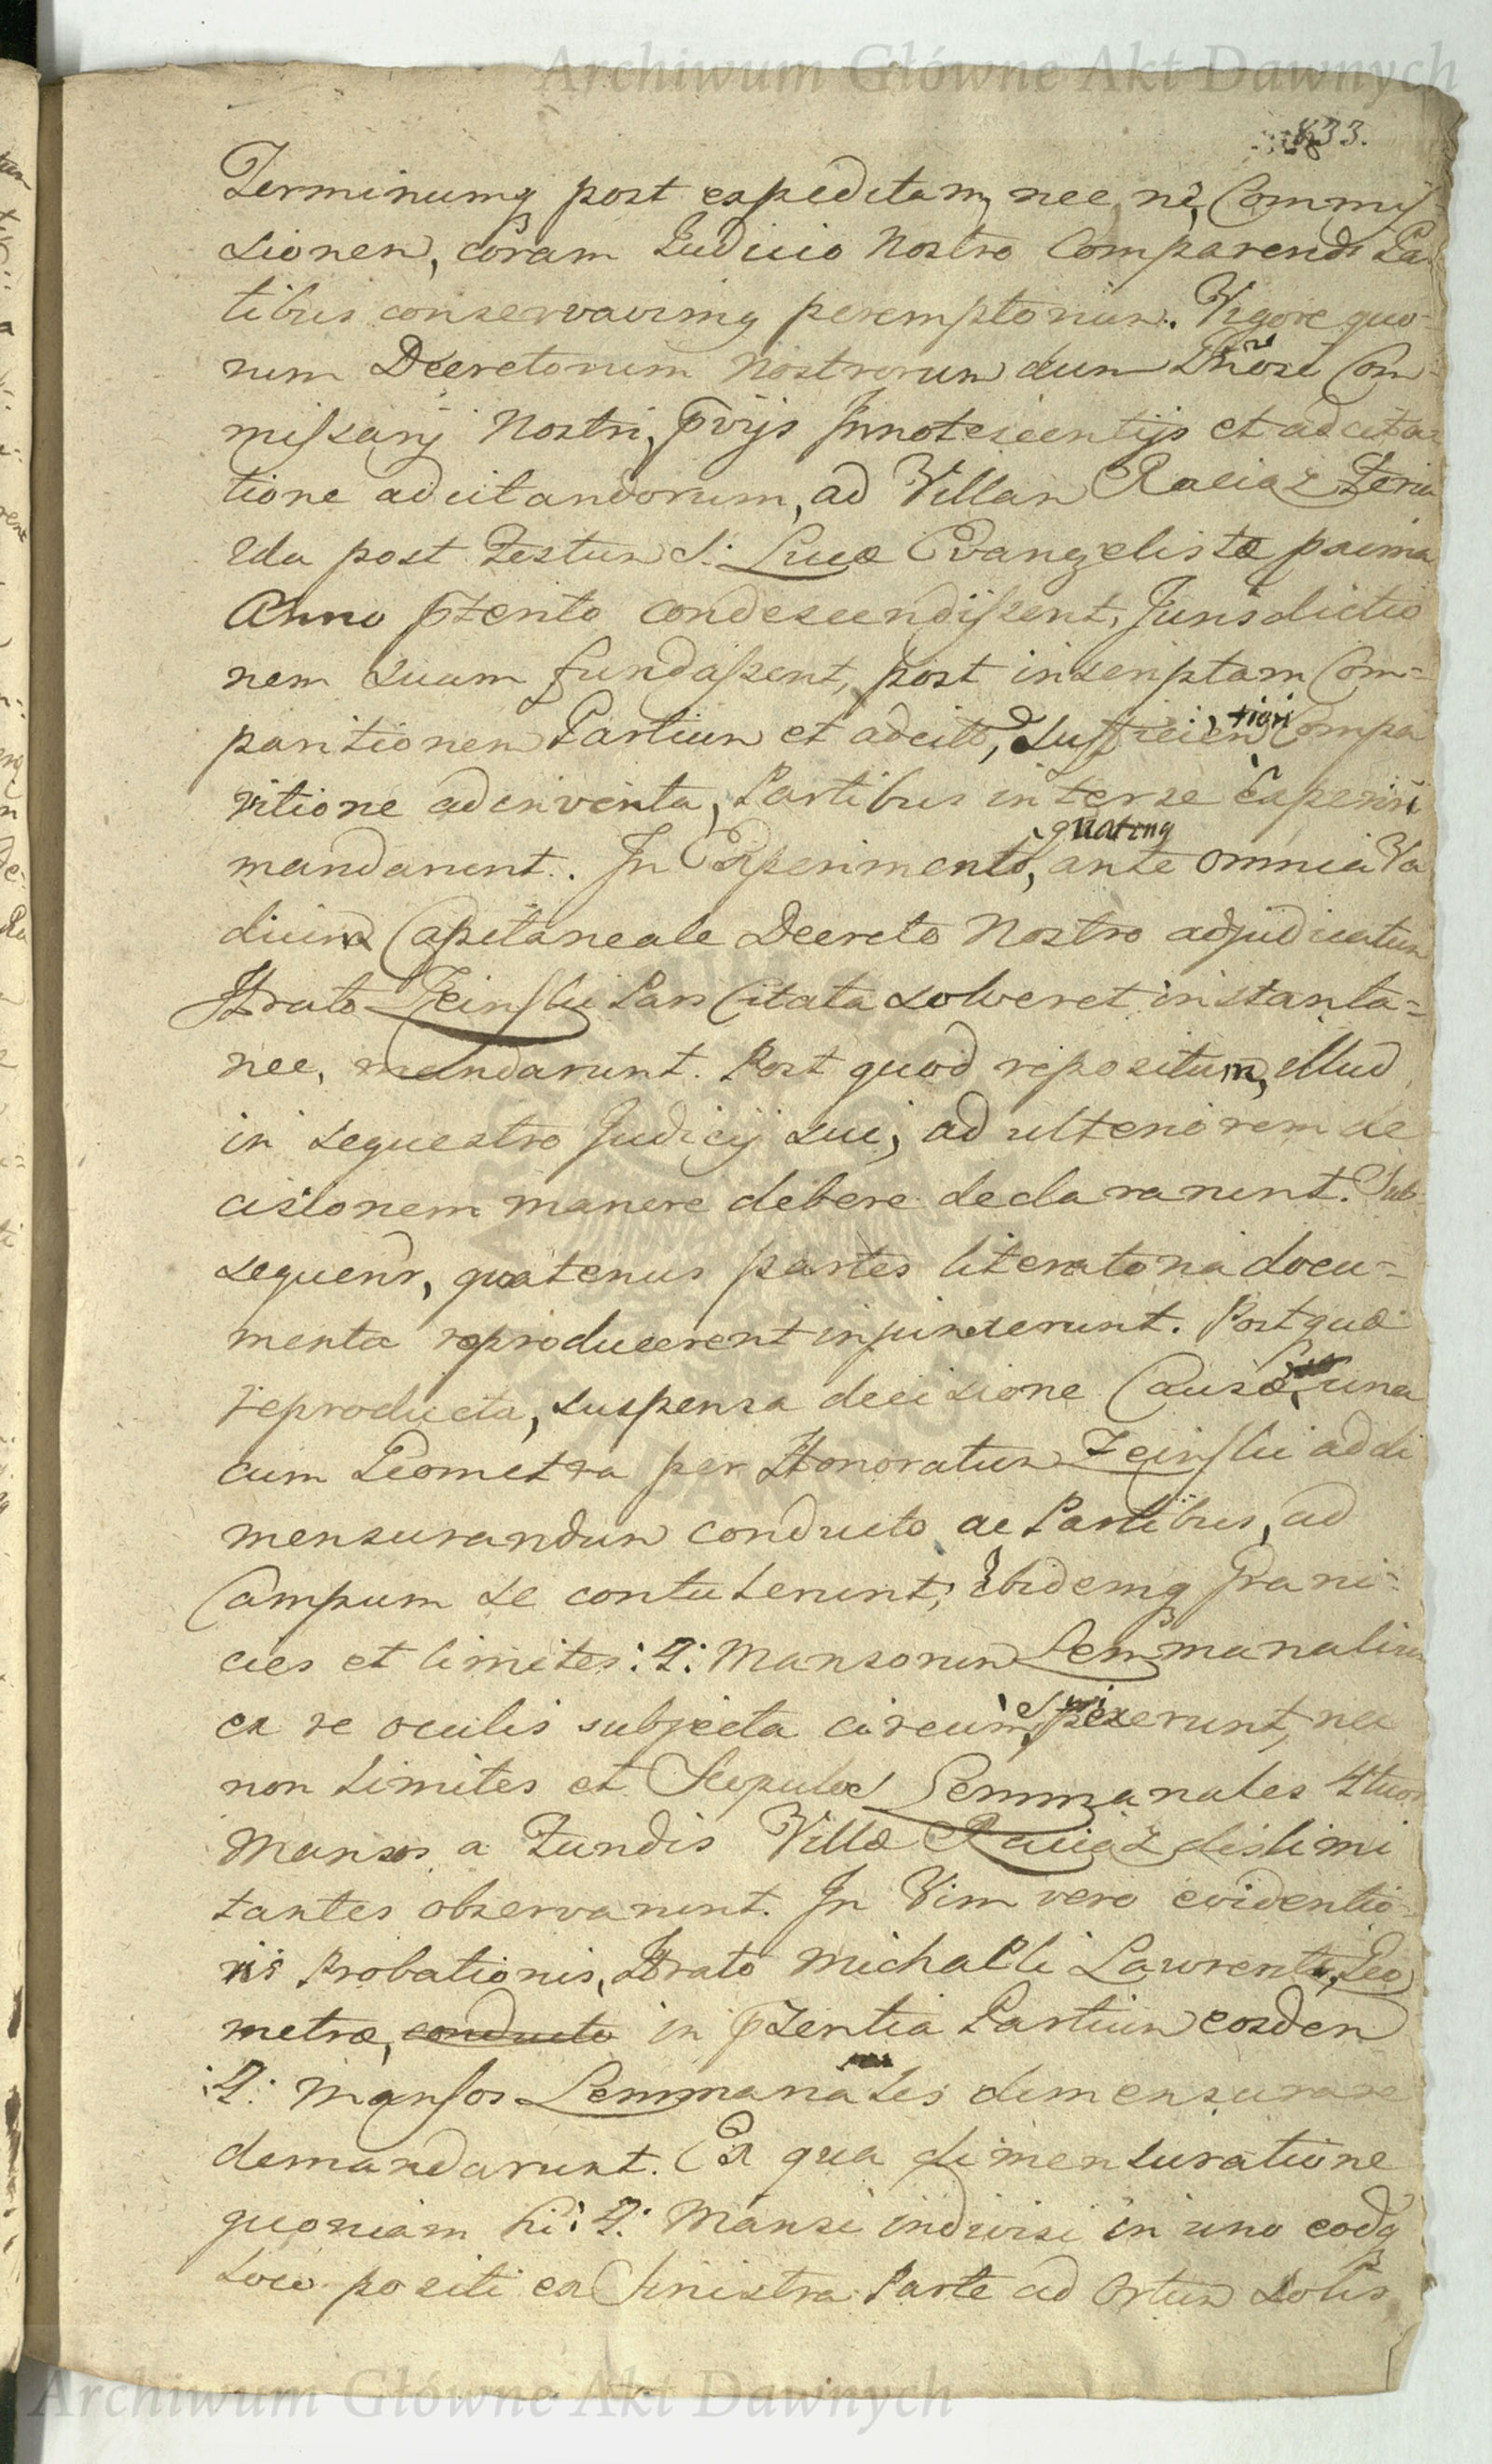 Archiwum Główne Akt Dawnych
833.
Terminumq post expeditam, nec ne, Commis-
sionem, coram Judicio Nostro Comparendi Par
tibus conservavimq peremptorium. Vigore quo-
rum Decretorum Nostrorum dum Gnosi Com-
missarij Nostri, pvijs Innotescentijs et adcita-
tione adcitandorum, ad Villam Raciaz Feria
2da post Festum S: Lucæ Evangelistæ proxima
Anno pzento condescendissent, Jurisdictio
nem suam fundassent, post inscriptam Com=
paritionem Partium et adcito, sufficien tiori Compa
ritione adinventa, Partibus inter se Experiri
mandarunt. In Experimento, quatenq ante omnia Va
dium Capitaneale Decreto Nostro adjudicatum
Hrato Zeinslii Pars Citata solveret instanta=
nee, mandarunt. Post quod repositum, illud
in sequestro Judicij sui, ad ulteriorem de
cisionem manere debere declararunt. Sub-
sequenr, quatenus partes literatoria docu=
menta reproducerent injunxerunt. Post quæ
reproducta, suspensa decisione Causæ, una
cum Geometra per Honoratum Zeinslii ad di
mensurandum conducto ac Partibus, ad
Campum se contulerunt; Ibidemq Grani=
cies et limites :4: Mansorum Lemmanalium
ex re oculis subjecta circumspexerunt, nec
non limites et Scopulos Lemmanales 4tuor
Mansos a Fundis Villæ Raciaz dislimi
tantes observarunt. In Vim vero evidentio-
ris Probationis, Hrato Michaeli Lawrentz, Geo
metræ, conducto in pzentia Partium eosdem
:4: Mansos Lemmanales dimensurare
demandarunt. Ex qua dimensuratione
quoniam hi :4: Mansi indivisi in uno eodq
Loco positi ex Sinistra Parte ad Ortum Solis
Archiwum Główne Akt Dawnych